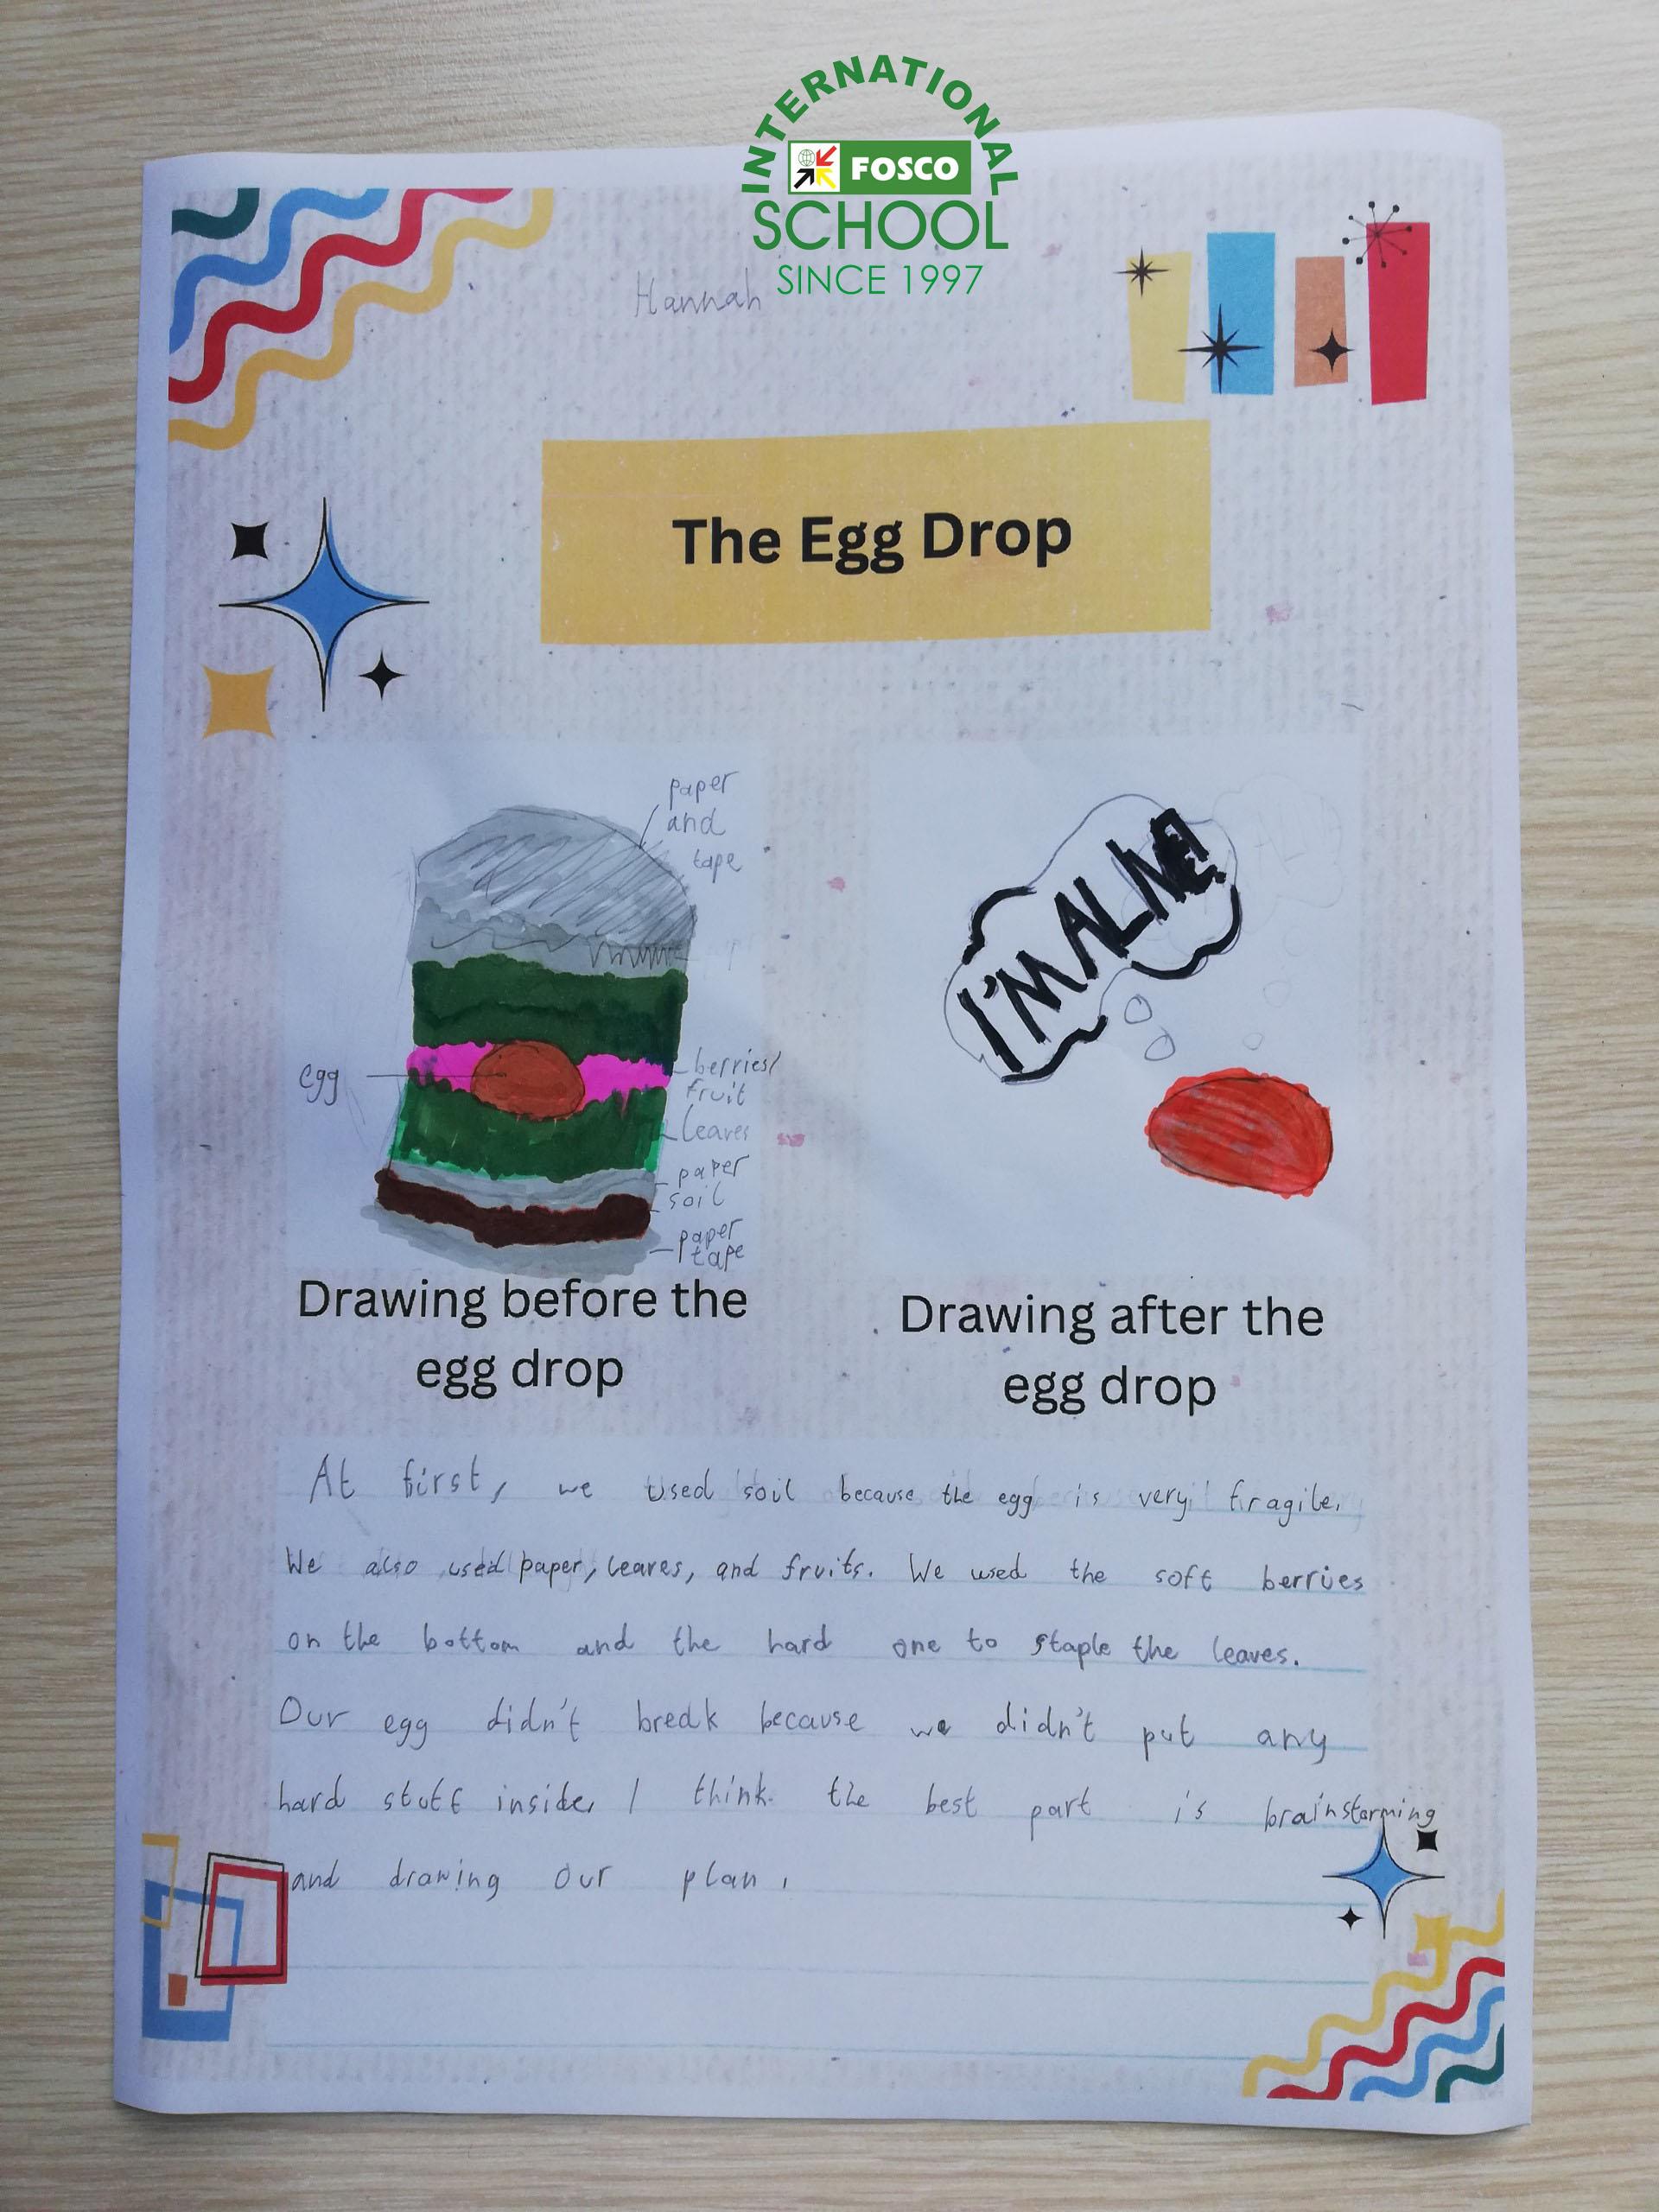 INTERNATIONAL
FOSCO
SCHOOL
SINCE 1997
Hannah
The Egg Drop
paper
and
tape
egg
berries/
fruit
leaves
paper
soil
paper
tape
I'M ALIVE!
Drawing before the
egg drop
Drawing after the
egg drop
At first, we used soil because the egg is very fragile.
We also used paper, leaves, and fruits. We used the soft berries
on the bottom and the hard one to staple the leaves.
Our egg didn't break because we didn't put any
hard stuff inside, I think. the best part is brainstorming
and drawing our plan.